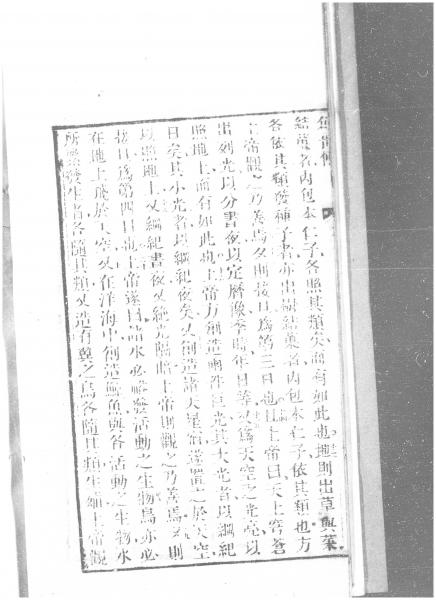 結菓者內包本仁子各照其類矣而有如此也地則出草與菜
各依其類發種子者亦出樹結菓者內包本仁子依其類也方
上帝觀之乃善焉夕則接日為第三日也且上帝曰天上穹蒼
出列光以分晝夜以定曆豫季時年日等又為天空之光亮以
照地上而有如此也上帝方創造兩件巨光其大光者以綱紀
日矣其小光者以綱紀夜矣又創造諸天星宿遂置之於天空
以照地上又綱紀晝夜又絶光暗臨上帝則觀之乃善焉夕則
接日為第四日也上帝遂曰諸水必賑發活動之生物鳥亦必
在地上飛於天空又在洋海中創造鯨魚與各活動之生物水
所賑發生者各隨其類又造有翼之鳥各隨其類生緬上帝觀